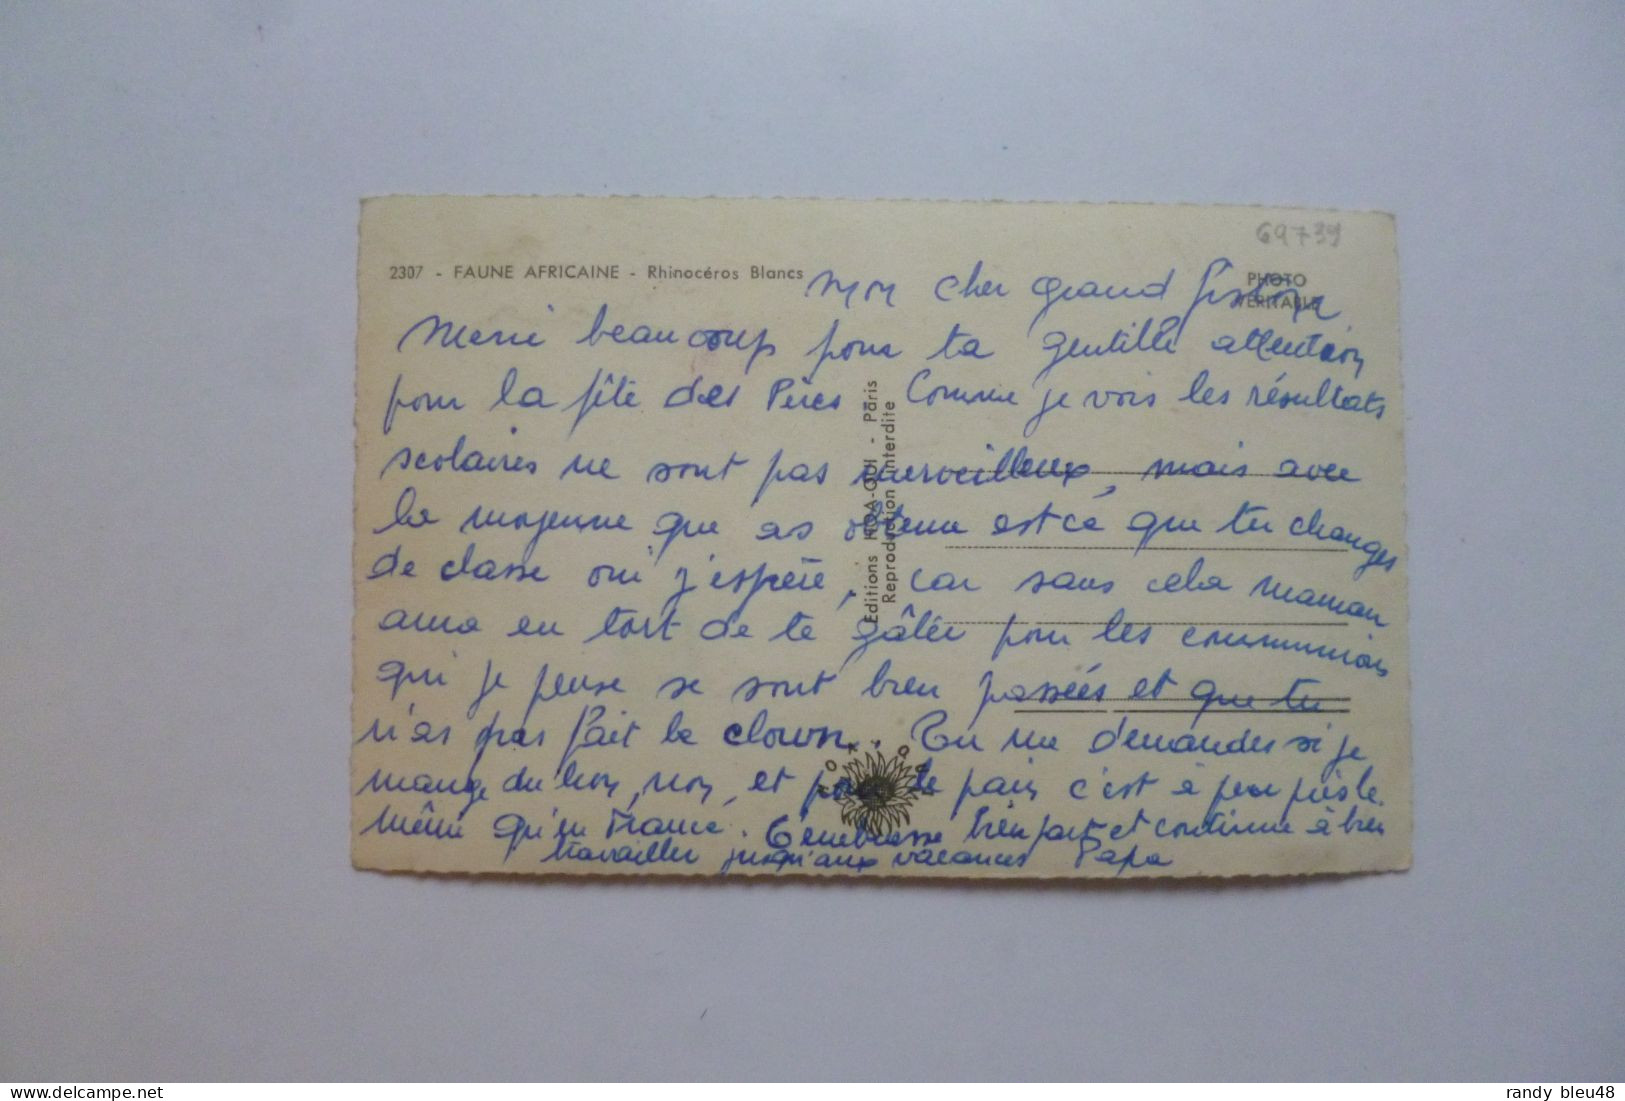 69739
2307 - FAUNE AFRICAINE - Rhinocéros Blancs
PHOTO
VÉRITABLE
Editions HOA-QUI - Paris
Reproduction interdite
Mon cher grand fiston
Merci beaucoup pour ta gentille attention
pour la fête des Pères Comme je vois les résultats
scolaires ne sont pas merveilleux, mais avec
la moyenne que as obtenu est ce que tu changes
de classe oui j'espère, car sans cela maman
aura eu tort de te gâter pour les communions
qui je pense se sont bien passées et que tu
n'as pas fait le clown. Tu me demandes si je
mange du lion, non, et pour le pain c'est à peu près le
même qu'en France. T'embrasse bien fort et continue à bien
travailler jusqu'aux vacances Papa
randy bleu48